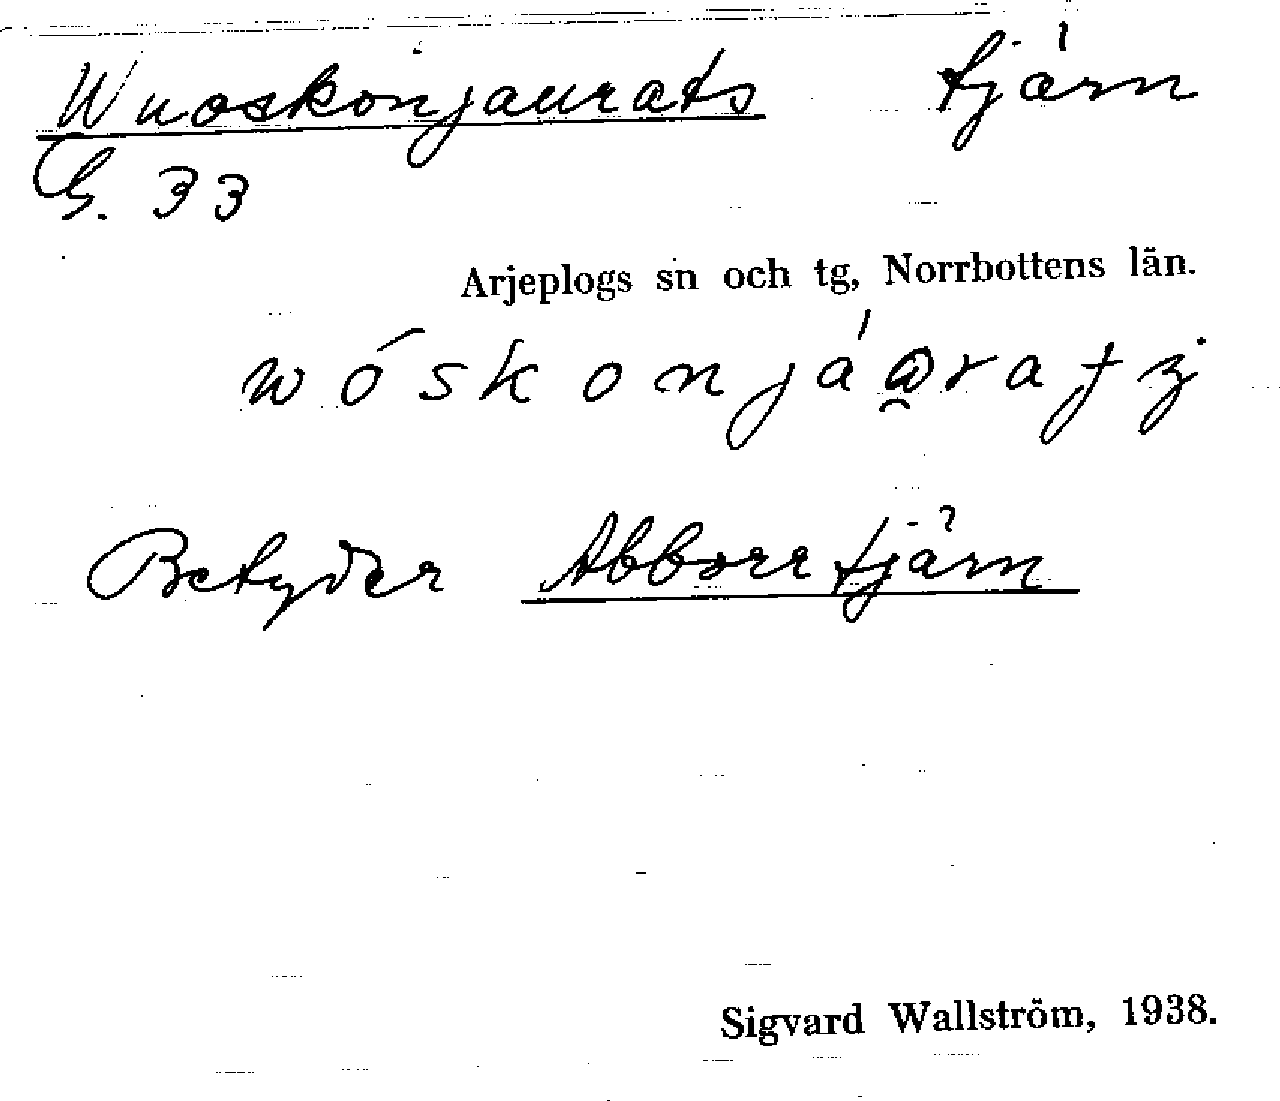 Wuoskonjaurats tjärn
G. 33
Arjeplogs sn och tg, Norrbottens län.
Betyder Abborrtjärn
Sigvard Wallström, 1938.